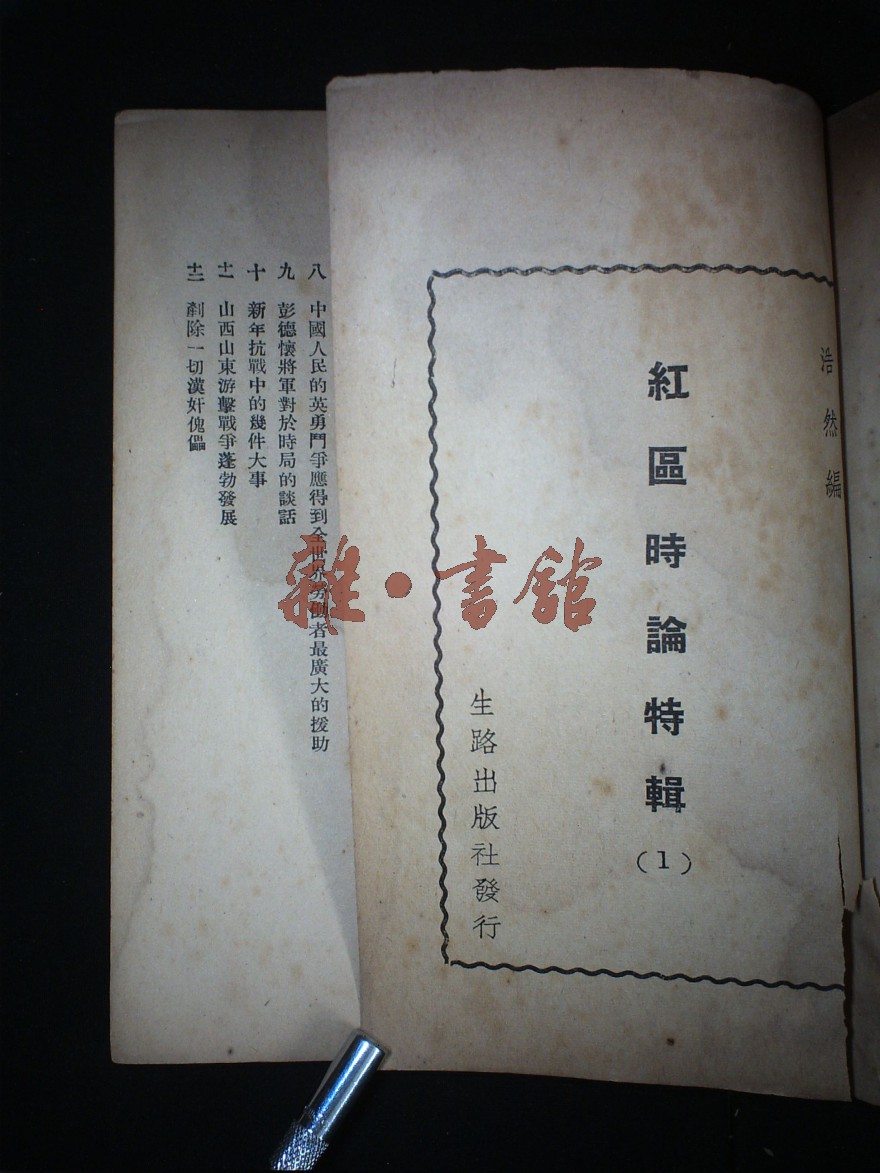 浩然編
紅區時論特輯
(1)
生路出版社發行
八 中國人民的英勇鬥爭應得到全世界勞働者最廣大的援助
九 彭德懷將軍對於時局的談話
十 新年抗戰中的幾件大事
十一 山西山東游擊戰爭蓬勃發展
十二 剷除一切漢奸傀儡
雜·書館